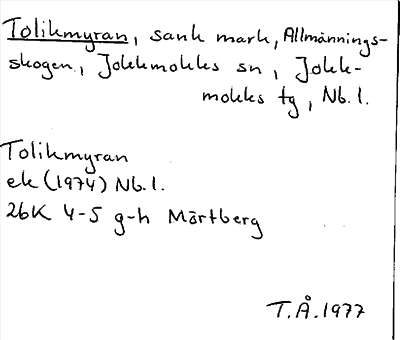 Tolikmyran, sank mark, Allmännings-
skogen, Jokkmokks sn, Jokk-
mokks tg, Nb.l.
Tolikmyran
ek (1974) Nb.l.
26K 4-5 g-h Mårtberg
T.Å.1977